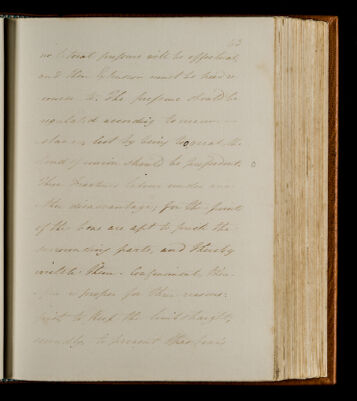 63
no lateral pressure will be effectual,
and then Extension must be had re
course to. The pressure should be
regulated according to circum
stances, lest by being too great the
bond of union should be prevented.
These fractures labour under ano
ther disadvantage; for the points
of the bone are apt to prick the
surrounding parts, and thereby
irritate them.
is proper for these reasons;
first to keep the limb straight,
secondly to prevent